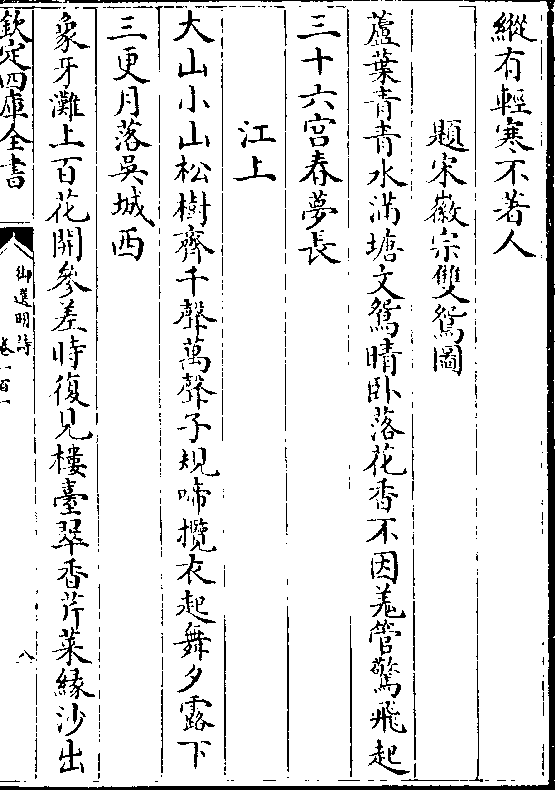 縱有輕寒不著人
題宋徽宗雙鴛圖
蘆葉青青水滿塘文鴛晴卧落花香不因羗管驚飛起
三十六宫春夢長
江上
大山小山松樹齊千聲萬聲子規啼攬衣起舞夕露下
三更月落吳城西
象牙灘上百花開參差時復見樓臺翠香芹菜緣沙出
欽定四庫全書
御選明詩
卷一百一
八